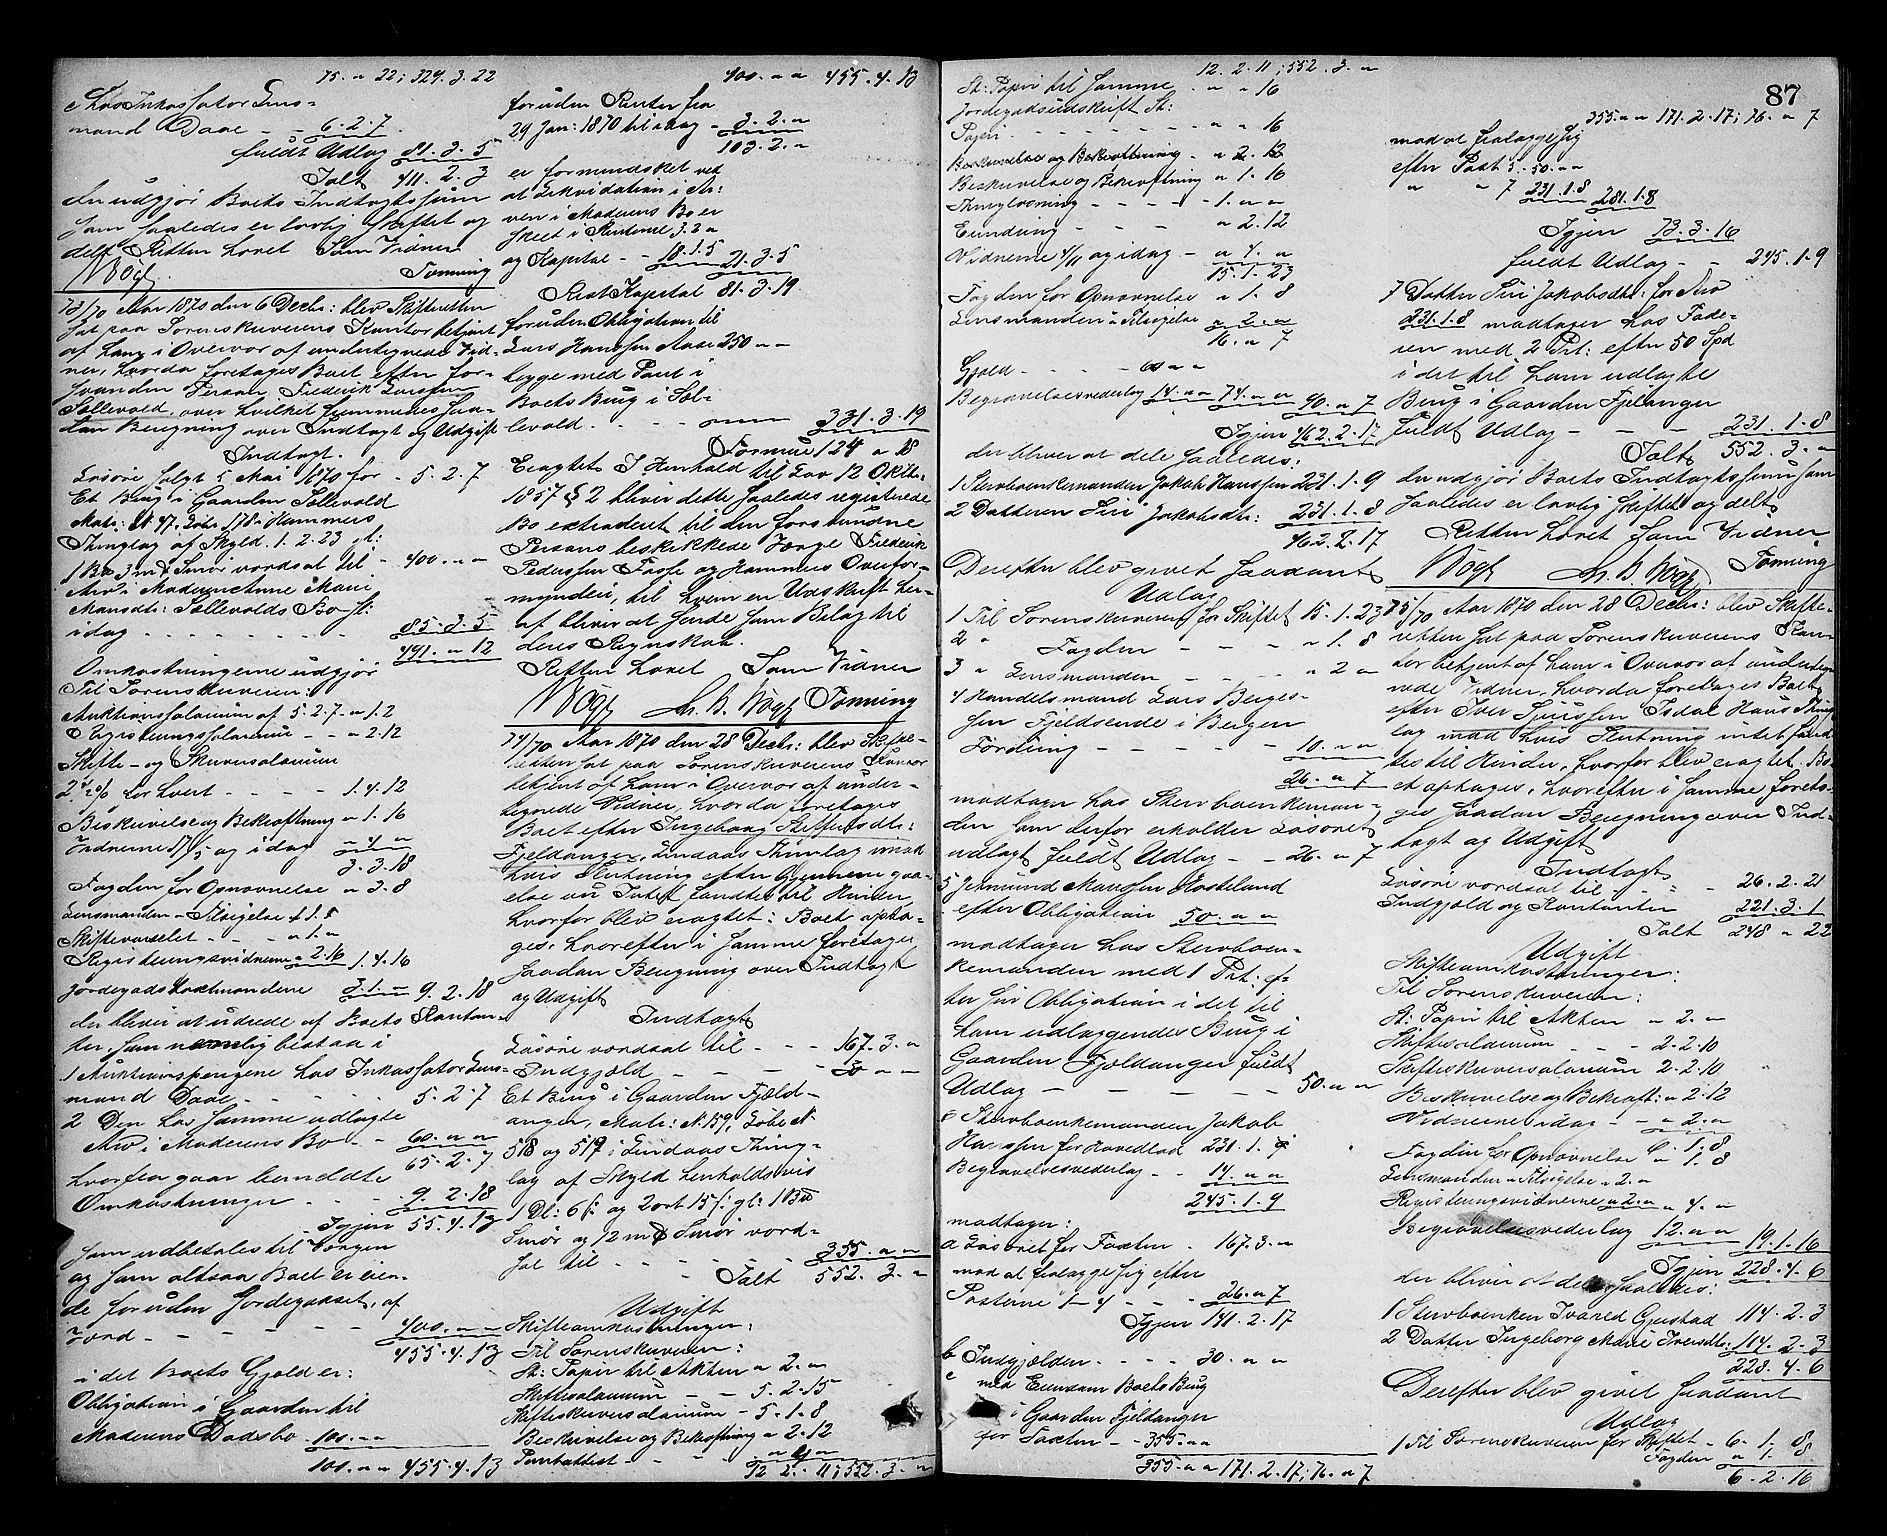 75. " 22; 324. 3. 22
c Hos Inkassator Lens-
mand Daae - - 6. 2. 7
fuldt Udlog 81. 3. 5
Talt 411. 2. 3
der udgjør Boets Indtægtssum
som saaledes er lovlig skiftet og
delt. Retten hævet Som Vidner
Vogt Tonning
73/70 Aar 1870 den 6 Decbr: blev Skifteretten
sat paa Sorenskriverens Kontor betjent
af ham i Overvær af undertegnede Vid-
ner, hvorda foretoges Boet efter for-
svundne Person Frederik Larssen
Sællevold, over hvilket fremmedes saa-
dan Beregning over Indtægt og Udgift
Indtægt.
Løsøre solgt 5 Mai 1870 for - 5. 2. 7
Et Brug i Gaarden Sællevold
Matr: N. 47, Løbe N. 178 i Hammers
Thinglag af Skyld 1. 2. 23 gl:
1 Bp 3 m# Smør vordsat til - 400. " "
Arv i Moderen Anne Marie
Monsdt: Sællevolds Bo gl:
idag - - - - - - 85. 3. 5
491. " 12
Omkostningerne udgjør
Til Sorenskriveren:
Auktionssalarium af 5. 2. 7 - " 1. 2
Registreringssalarium - - " 2. 12
Skifte- og Skriversalarium
2 % for hvert - - - 1. 4. 12
Beskrivelse og Bekræftning " 1. 16
Vidnerne 17/5 og idag - " 4. "
3. 3. 18
Fogden for Opnævnelse " 3. 8
Lensmanden - Tilsigelse " 1. 8
Skiftevarselet - - - " 1. "
Registreringsvidnerne " 2. 16 1. 4. 16
Jordegods Taxtmændene 3. 1. " 9. 2. 18
der bliver at udrede af Boets Kontan-
ter, som nemlig bestaa i
1 Auktionspengene hos Inkassator Lens-
mand Daae - - - - 5. 2. 7
2 Den hos samme udlagte
Arv i Moderens Bo - - 60. " "
65. 2. 7
hvorfra gaar bemeldte
Omkostninger - - - 9. 2. 18
Igjen 55. 4. 13
som udbetales til Værgen
og som altsaa Boet er eien-
de foruden Jordegodset, af
Værd - - - - - 400. " "
455. 4. 13
i det Boets Gjæld er:
Obligation i Gaarden til
Moderens Dødsbo - 100. " "
100. " " 455. 4. 13
400. " " 455. 4. 13
foruden Renter fra
29 Jan: 1870 til idag - 3. 2. "
103. 2. "
er formindsket ved
at Likvidation i Ar-
ven i Moderens Bo er
skeet i Renterne 3. 2 "
og Kapital - - 18. 1. 5 21. 3. 5
Rest Kapital 81. 3. 19
foruden Obligation til
Lars Hanssen Aase 250 " "
begge med Pant i
Boets Brug i Sæl-
levold - - - - 331. 3. 19
Formue 124 " 18
Eragtet I Henhold til Lov 12 Oktbr:
1857 § 2 bliver dette saaledes registrerede
Bo extraderet til den forsvundne
Persons beskikkede Værge Frederik
Pederssen Fosse og Hammers Overfor-
mynderi, til hvem en Udskrift her-
af bliver at sende som Bilag til
deres Regnskab.
Retten hævet Som Vidner
Vogt Chr. B. Vogt Tonning
74/70 Aar 1870 den 28 Decbr: blev Skifte-
retten sat paa Sorenskriverens Kontor
betjent af ham i Overvær af under-
tegnede Vidner, hvorda foretoges
Boet efter Ingeborg Steffensdt:
Fjeldanger, Lindaas Thinglag mod
hvis Slutning efter Gjennemgaa-
else nu Intet fandtes til Hinder,
hvorfor blev eragtet: Boet opta-
ges, hvorefter i samme foretoges
saadan Beregning over Indtægt
og Udgift
Indtægt
Løsøre vordsat til - - - 167. 3. "
Indgjæld - - - - - 30 " "
Et Brug i Gaarden Fjeld-
anger, Matr: N. 159, Løbe N.
518 og 519 i Lindaas Thing-
lag af Skyld henholdsvis
1 Dl: 6 ß: og 2 ort 15 ß: gl: 1 Bp
Smør og 12 m# Smør vord-
sat til - - - - - 355. " "
Talt 552. 3. "
Udgift
Skifteomkostninger:
Til Sorenskriveren:
St: Papir til Akten " 2. "
Skiftesalarium - - 5. 2. 15
Skifteskriversalarium - 5. 1. 8
Beskrivelse og Bekræftning " 2. 12
Panteattest - - - " 4 "
12 2. 11; 552. 3. "
87
12. 2. 11; 552. 3. "
St: Papir til samme - " " 16
Jordegodsudskrift St:
Papir - - - - - - " " 16
Beskrivelse og Bekræftning - " 2. 12
Beskrivelse og Bekræftning " 1. 16
Thinglæsning - - - - 1. " "
- - - - " 2. 12
Vidnerne 4/11 og idag - " 4. "
15. 1. 23
Fogden for Opnævnelse " 1. 8
Lensmanden " Tilsigelse " 2. "
16. " 7
Gjæld - - - - 60 " "
Begravelsesvederlag 14. " " 74. " " 90. " 7
Igjen 462. 2. 17
der bliver at dele saaledes:
1 Stervboenkemanden Jakob Hanssen 231. 1. 9
2 Datteren Siri Jakobsdt: 231. 1. 8
462. 2. 17
Derefter blev givet saadant
Udlæg
1 Til Sorenskriveren for Skiftet 15. 1. 23
2 " Fogden - - - " 1. 8
3 " Lensmanden - - - - " 2 "
4 Handelsmand Lars Berges-
sen Fjeldsende i Bergen
Fordring - - - - - 10. " "
26. " 7
modtager hos Stervboenkeman-
den som derfor erholder Løsøret
udlagt fuldt Udlæg - - 26. " 7
5 Jermund Monssen Hosteland
efter Obligation 50. " "
modtager hos Stervboen-
kemanden med 1 Prt: ef-
ter sin Obligation i det til
ham udlæggendes Brug i
Gaarden Fjeldanger fuldt
Udlæg - - - - - - 50. " "
6 Stervboenkemanden Jakob
Hanssen for Hovedlod 231. 1. 9
Begravelsesvederlag - - 14. " "
245. 1. 9
modtager:
a Løsøret for Taxten - 167. 3. "
mod at fralægge sig efter
Posterne 1-4 - - - 26. " 7
Igjen 141. 2. 17
b Indgjælden - - - - 30. " "
c med Eiendom Boets Brug
i Gaarden Fjeldanger
for Taxten - - 355. " "
355. " " 171. 2. 17; 76. " 7
355. " " 171. 2. 17; 76. " 7
mod at fralægge sig
efter Post 5. 50. " "
" " 7 231. 1. 8 281. 1. 8
Igjen 73. 3. 16
fuldt Udlæg - - 245. 1. 9
7 Datter Siri Jakobsdt: for Arv
231. 1. 8 modtager hos Fade-
ren med 2 Prt: efter 50 Spd
i det til ham udlagte
Brug i Gaarden Fjelanger
fuldt Udlæg - - - 231. 1. 8
Talt 552. 3. "
der udgjør Boets Indtægtssum som
saaledes er lovlig skiftet og delt
Retten hævet Som Vidner
Vogt Chr. B. Vogt Tonning
75/70 Aar 1870 den 28 Decbr: blev Skifte-
retten sat paa Sorenskriverens Kon-
tor betjent af ham i Overvær af underteg-
nede Vidner, hvorda foretoges Boet
efter Iver Sjurssen Isdal Hous Thing-
lag mod hvis Slutning intet fand-
tes til Hinder, hvorfor blev eragtet: Bo-
et optages, hvorefter i samme foreto-
ges saadan Beregning over Ind-
tægt og Udgift
Indtægt
Løsøre vordsat til - - - 26. 2. 21
Indgjæld og Kontanter 221. 3. 1
Talt 248 " 22
Udgift
Skifteomkostninger:
Til Sorenskriveren:
St: Papir til Akten " 2. "
Skiftesalarium - - - 2. 2. 10
Skifteskriversalarium 2. 2. 10
Beskrivelse og Bekræft: " 2. 12
Vidnerne idag - - " 2. "
6. 1. 8
Fogden for Opnævnelse " 1. 8
Lensmanden " Tilsigelse " 2. "
Registreringsvidnerne " 2. " " 4. "
Begravelsesvederlag 12. " " 19. 1. 16
Igjen 228. 4. 6
der bliver at dele saaledes:
1 Stervboenken Gjestad 114. 2. 3
2 Datter Ingeborg Marie Iversdt: 114. 2. 3
228. 4. 6
Derefter blev givet saadant
Udlæg
1 Til Sorenskriveren for Skiftet - 6. 1. 8
Fogden " 1. 8
6. 2. 16